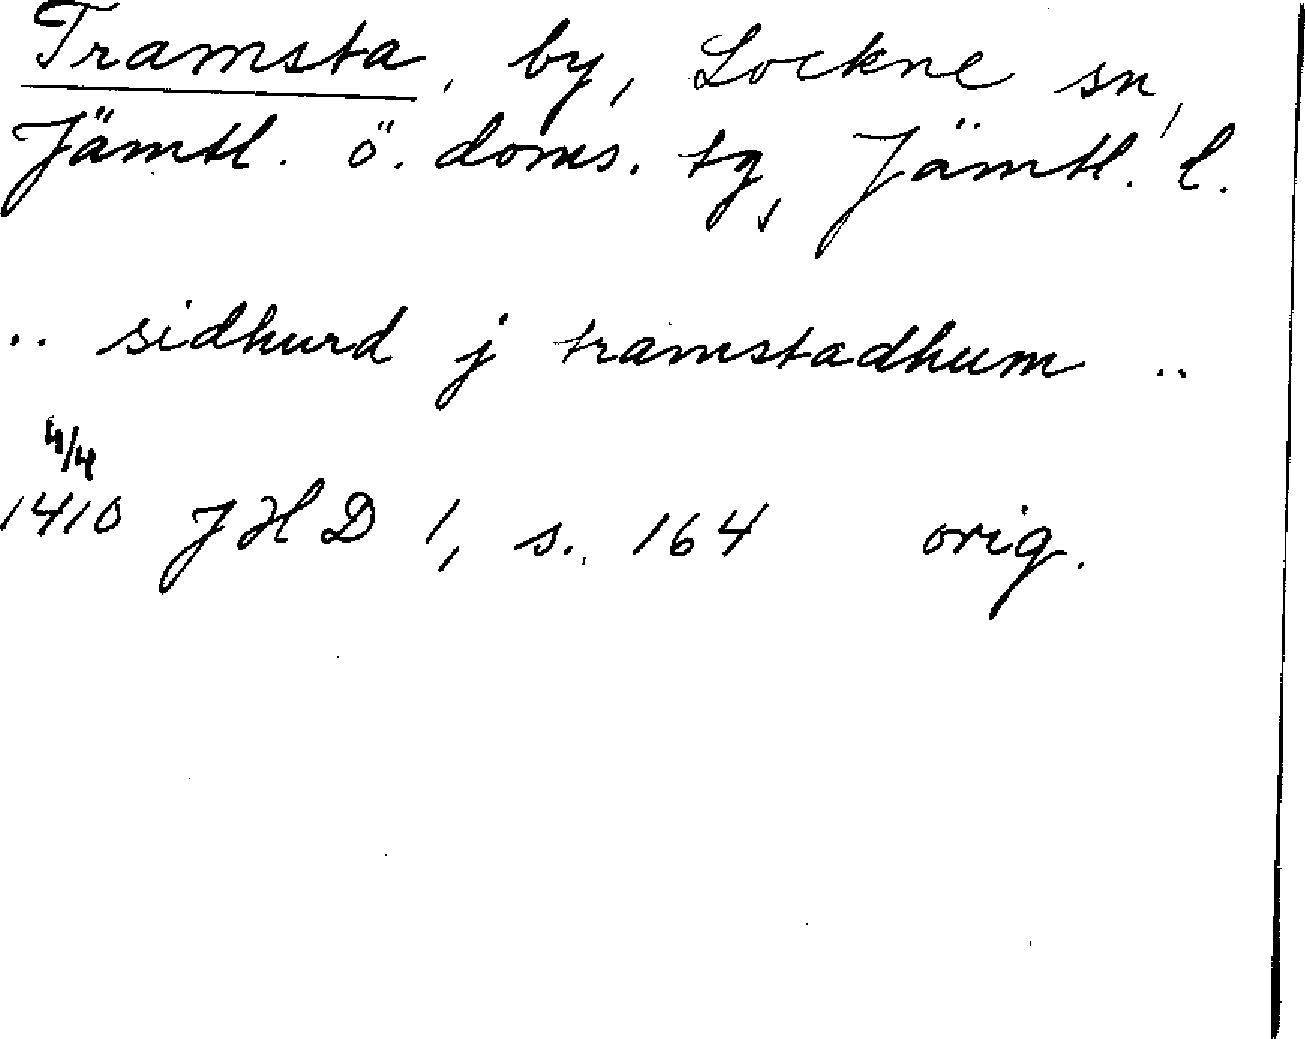 Tramsta, by, Lockne sn,
Jämtl. ö. doms. tg, Jämtl. l.
.. sidhurd j tramstadhum ..
4/4
1410 JHD 1, s. 164 orig.